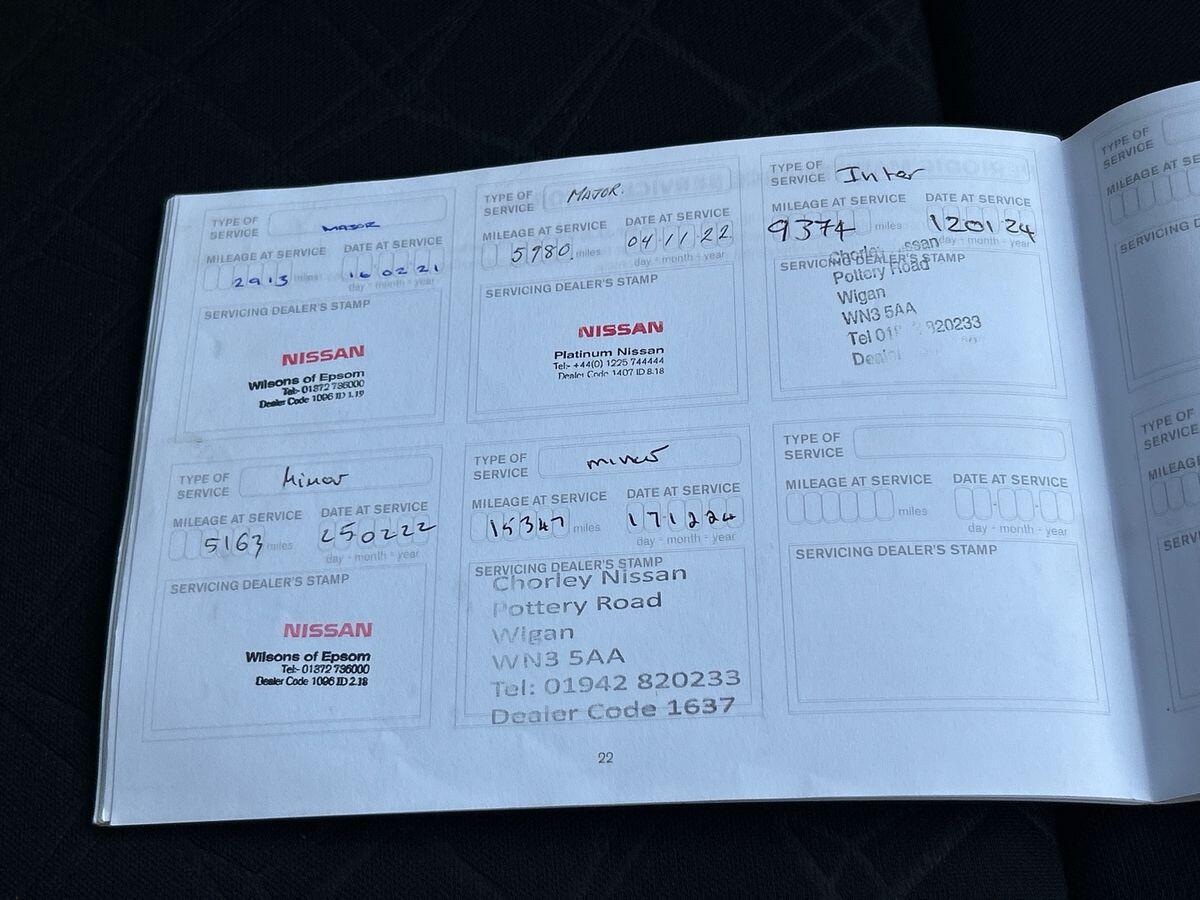 TYPE OF
SERVICE MAJOR
MILEAGE AT SERVICE DATE AT SERVICE
2913 miles 16 02 21
day - month - year
SERVICING DEALER'S STAMP
NISSAN
Wilsons of Epsom
Tel:- 01372 736000
Dealer Code 1096 ID 1.19
TYPE OF
SERVICE MAJOR.
MILEAGE AT SERVICE DATE AT SERVICE
5980. miles 04 11 22
day - month - year
SERVICING DEALER'S STAMP
NISSAN
Platinum Nissan
Tel:- +44(0) 1225 744444
Dealer Code 1407 ID 8.18
TYPE OF
SERVICE Inter
MILEAGE AT SERVICE DATE AT SERVICE
9374 miles 120124
day - month - year
SERVICING DEALER'S STAMP
Chorley
Pottery Road
Wigan
WN3 5AA
Tel 820233
TYPE OF
SERVICE Minor
MILEAGE AT SERVICE DATE AT SERVICE
5163 miles 250222
day - month - year
SERVICING DEALER'S STAMP
NISSAN
Wilsons of Epsom
Tel:- 01372 736000
Dealer Code 1096 ID 2.18
TYPE OF
SERVICE minor
MILEAGE AT SERVICE DATE AT SERVICE
15347 miles 171224
day - month - year
SERVICING DEALER'S STAMP
Chorley Nissan
Pottery Road
Wigan
WN3 5AA
Tel: 01942 820233
Dealer Code 1637
TYPE OF
SERVICE
MILEAGE AT SERVICE DATE AT SERVICE
miles
day - month - year
SERVICING DEALER'S STAMP
22
TYPE OF
SERVICE
MILEAGE AT
SERVICING
TYPE OF
SERVICE